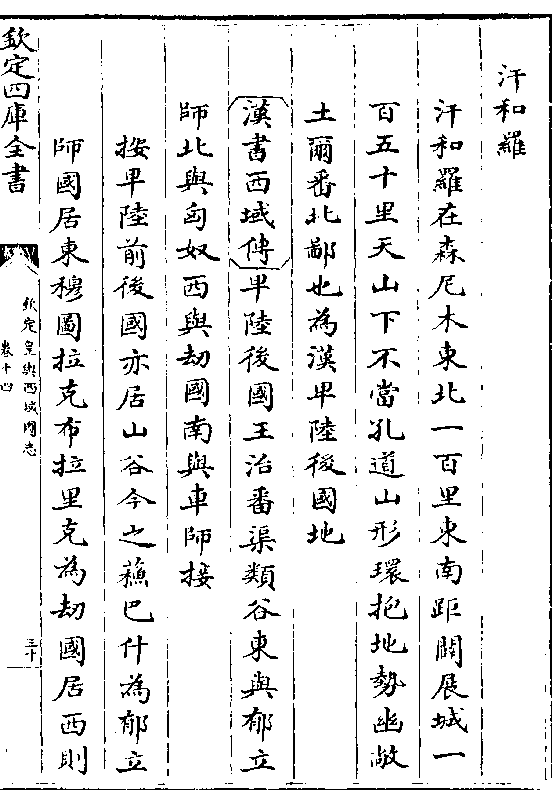 汗和羅
汗和羅在森尼木東北一百里東南距闢展城一
百五十里天山下不當孔道山形環抱地勢幽敞
土爾番北鄙也為漢卑陸後國地
漢書西域傳卑陸後國王治番渠類谷東與郁立
師北與匈奴西與劫國南與車師接
按卑陸前後國亦居山谷今之蘓巴什為郁立
師國居東穆圖拉克布拉里克為劫國居西則
欽定四庫全書
欽定皇輿西域圖志
卷十四
三十